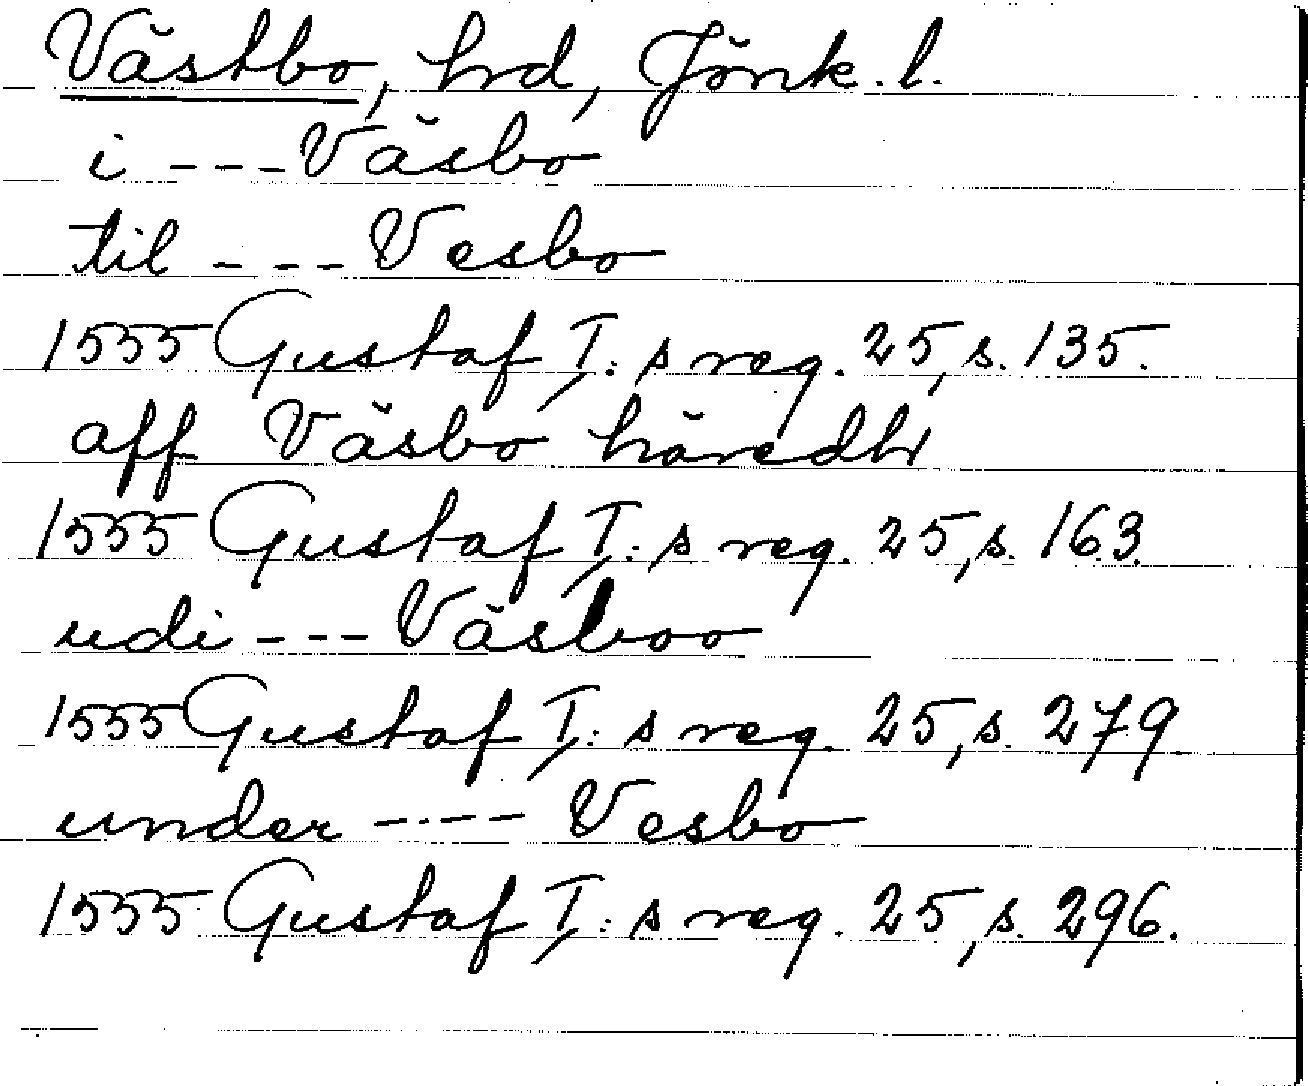 Västbo, hrd, Jönk. l.
i --- Väsbo
til --- Vesbo
1555 Gustaf I: s reg. 25, s. 135.
aff Väsbo häredhr
1555 Gustaf I: s reg. 25, s. 163.
udi --- Väsboo
1555 Gustaf I: s reg. 25, s. 279
under ---- Vesbo
1555 Gustaf I: s reg. 25, s. 296.